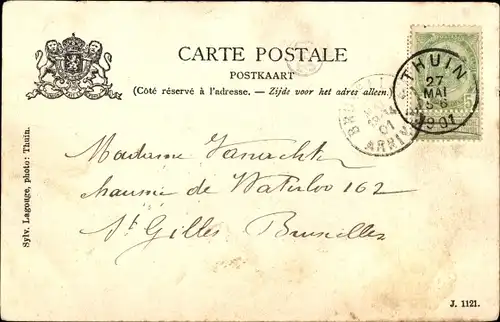 CARTE POSTALE
POSTKAART
(Côté réservé à l'adresse. — Zijde voor het adres alleen.)
THUIN
27
MAI
5-6
1901
5
01
ARRIV
Madame Vanackt
chaussée de Waterloo 162
St Gilles Bruxelles
Sylv. Lagouge, photo: Thuin.
J. 1121.